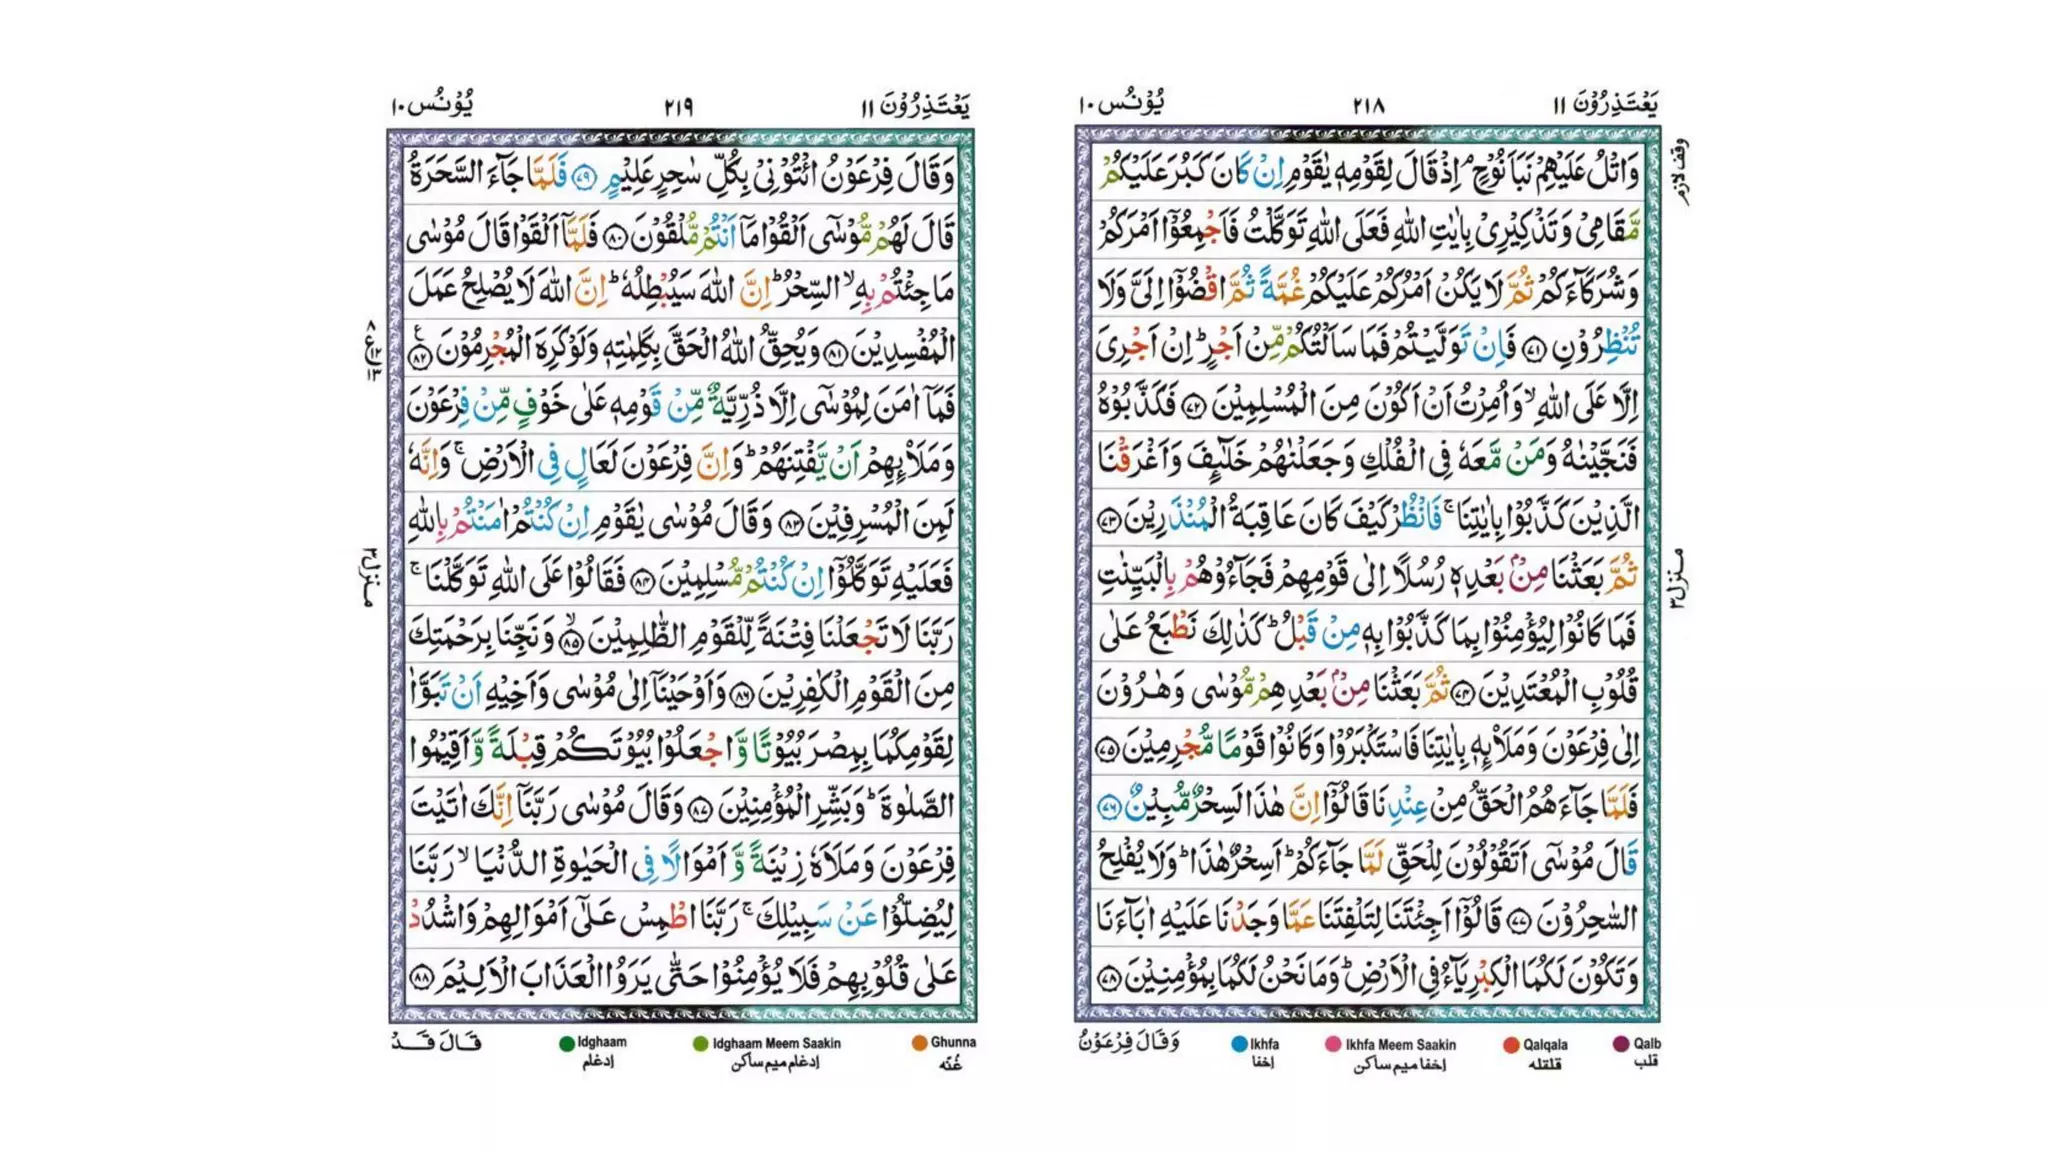 یَعْتَذِرُوْنَ ۱۱
۲۱۸
یُوْنُس ۱۰
وَاتْلُ عَلَیْهِمْ نَبَاَ نُوْحٍ ۘ اِذْ قَالَ لِقَوْمِهٖ یٰقَوْمِ اِنْ كَانَ كَبُرَ عَلَیْكُمْ
مَّقَامِیْ وَتَذْكِیْرِیْ بِاٰیٰتِ اللّٰهِ فَعَلَی اللّٰهِ تَوَكَّلْتُ فَاَجْمِعُوْۤا اَمْرَكُمْ
وَشُرَكَآءَكُمْ ثُمَّ لَا یَكُنْ اَمْرُكُمْ عَلَیْكُمْ غُمَّةً ثُمَّ اقْضُوْۤا اِلَیَّ وَلَا
تُنْظِرُوْنِ ۝۷۱ فَاِنْ تَوَلَّیْتُمْ فَمَا سَاَلْتُكُمْ مِّنْ اَجْرٍ ؕ اِنْ اَجْرِیَ
اِلَّا عَلَی اللّٰهِ ۙ وَاُمِرْتُ اَنْ اَكُوْنَ مِنَ الْمُسْلِمِیْنَ ۝۷۲ فَكَذَّبُوْهُ
فَنَجَّیْنٰهُ وَمَنْ مَّعَهٗ فِی الْفُلْكِ وَجَعَلْنٰهُمْ خَلٰٓىِٕفَ وَاَغْرَقْنَا
الَّذِیْنَ كَذَّبُوْا بِاٰیٰتِنَا ۚ فَانْظُرْ كَیْفَ كَانَ عَاقِبَةُ الْمُنْذَرِیْنَ ۝۷۳
ثُمَّ بَعَثْنَا مِنْۢ بَعْدِهٖ رُسُلًا اِلٰی قَوْمِهِمْ فَجَآءُوْهُمْ بِالْبَیِّنٰتِ
فَمَا كَانُوْا لِیُؤْمِنُوْا بِمَا كَذَّبُوْا بِهٖ مِنْ قَبْلُ ؕ كَذٰلِكَ نَطْبَعُ عَلٰی
قُلُوْبِ الْمُعْتَدِیْنَ ۝۷۴ ثُمَّ بَعَثْنَا مِنْۢ بَعْدِهِمْ مُّوْسٰی وَهٰرُوْنَ
اِلٰی فِرْعَوْنَ وَمَلَا۟ىِٕهٖ بِاٰیٰتِنَا فَاسْتَكْبَرُوْا وَكَانُوْا قَوْمًا مُّجْرِمِیْنَ ۝۷۵
فَلَمَّا جَآءَهُمُ الْحَقُّ مِنْ عِنْدِنَا قَالُوْۤا اِنَّ هٰذَا لَسِحْرٌ مُّبِیْنٌ ۝۷۶
قَالَ مُوْسٰۤی اَتَقُوْلُوْنَ لِلْحَقِّ لَمَّا جَآءَكُمْ ؕ اَسِحْرٌ هٰذَا ؕ وَلَا یُفْلِحُ
السّٰحِرُوْنَ ۝۷۷ قَالُوْۤا اَجِئْتَنَا لِتَلْفِتَنَا عَمَّا وَجَدْنَا عَلَیْهِ اٰبَآءَنَا
وَتَكُوْنَ لَكُمَا الْكِبْرِیَآءُ فِی الْاَرْضِ ؕ وَمَا نَحْنُ لَكُمَا بِمُؤْمِنِیْنَ ۝۷۸
وقف لازم
منزل۳
وَقَالَ فِرْعَوْنُ
Ikhfa
Ikhfa Meem Saakin
Qalqala
Qalb
إخفا
إخفا میم ساکن
قلقله
قلب
یَعْتَذِرُوْنَ ۱۱
۲۱۹
یُوْنُس ۱۰
وَقَالَ فِرْعَوْنُ ائْتُوْنِیْ بِكُلِّ سٰحِرٍ عَلِیْمٍ ۝۷۹ فَلَمَّا جَآءَ السَّحَرَةُ
قَالَ لَهُمْ مُّوْسٰۤی اَلْقُوْا مَاۤ اَنْتُمْ مُّلْقُوْنَ ۝۸۰ فَلَمَّاۤ اَلْقَوْا قَالَ مُوْسٰی
مَا جِئْتُمْ بِهِ ۙ السِّحْرُ ؕ اِنَّ اللّٰهَ سَیُبْطِلُهٗ ؕ اِنَّ اللّٰهَ لَا یُصْلِحُ عَمَلَ
الْمُفْسِدِیْنَ ۝۸۱ وَیُحِقُّ اللّٰهُ الْحَقَّ بِكَلِمٰتِهٖ وَلَوْ كَرِهَ الْمُجْرِمُوْنَ ۝۸۲ ع
فَمَاۤ اٰمَنَ لِمُوْسٰۤی اِلَّا ذُرِّیَّةٌ مِّنْ قَوْمِهٖ عَلٰی خَوْفٍ مِّنْ فِرْعَوْنَ
وَمَلَا۟ىِٕهِمْ اَنْ یَّفْتِنَهُمْ ؕ وَاِنَّ فِرْعَوْنَ لَعَالٍ فِی الْاَرْضِ ۚ وَاِنَّهٗ
لَمِنَ الْمُسْرِفِیْنَ ۝۸۳ وَقَالَ مُوْسٰی یٰقَوْمِ اِنْ كُنْتُمْ اٰمَنْتُمْ بِاللّٰهِ
فَعَلَیْهِ تَوَكَّلُوْۤا اِنْ كُنْتُمْ مُّسْلِمِیْنَ ۝۸۴ فَقَالُوْا عَلَی اللّٰهِ تَوَكَّلْنَا ۚ
رَبَّنَا لَا تَجْعَلْنَا فِتْنَةً لِّلْقَوْمِ الظّٰلِمِیْنَ ۝۸۵ۙ وَنَجِّنَا بِرَحْمَتِكَ
مِنَ الْقَوْمِ الْكٰفِرِیْنَ ۝۸۶ وَاَوْحَیْنَاۤ اِلٰی مُوْسٰی وَاَخِیْهِ اَنْ تَبَوَّاٰ
لِقَوْمِكُمَا بِمِصْرَ بُیُوْتًا وَّاجْعَلُوْا بُیُوْتَكُمْ قِبْلَةً وَّاَقِیْمُوا
الصَّلٰوةَ ؕ وَبَشِّرِ الْمُؤْمِنِیْنَ ۝۸۷ وَقَالَ مُوْسٰی رَبَّنَاۤ اِنَّكَ اٰتَیْتَ
فِرْعَوْنَ وَمَلَاَهٗ زِیْنَةً وَّاَمْوَالًا فِی الْحَیٰوةِ الدُّنْیَا ۙ رَبَّنَا
لِیُضِلُّوْا عَنْ سَبِیْلِكَ ۚ رَبَّنَا اطْمِسْ عَلٰۤی اَمْوَالِهِمْ وَاشْدُدْ
عَلٰی قُلُوْبِهِمْ فَلَا یُؤْمِنُوْا حَتّٰی یَرَوُا الْعَذَابَ الْاَلِیْمَ ۝۸۸
۸
ع۱۲
۱۳
منزل۳
قَالَ قَدْ
Idghaam
Idghaam Meem Saakin
Ghunna
إدغام
إدغام میم ساکن
غُنّه